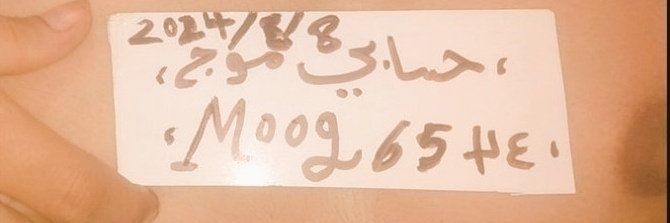 2024/8/8
، حسابي موج ،
، Moog 65 ٣٤ ،